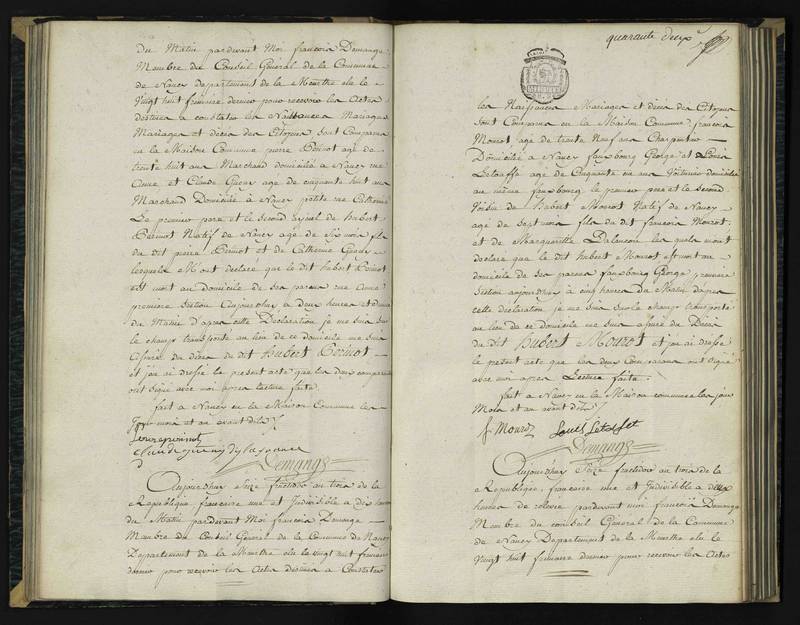 du Matin pardevant Moi françois Demange
Membre du Conseil General de la Commune
de Nancy Departement de la Meurthe élu le
Vingt huit frimaire dernier pour recevoir les Actes
destinés a constater les Naissances Mariages
Mariages et décès des Citoyens sont Comparus
en la Maison Commune pierre Poirot agé de
trente huit ans Marchand domicilié a Nancy rue
et Claude agé de cinquante huit ans
Marchand Domicilié a Nancy petite rue Catherine
Le premier pere et le second ayeul de hubert
Natif de Nancy agé de Six mois fils
du dit pierre et de Catherine
lesquels M'ont declaré que le dit hubert
est mort au Domicile de ses parens rue
premiere Section Aujourdhuy a deux heures et demie
du Matin d'apres cette Declaration je me suis sur
le champ transporté au lieu de ce domicile me suis
assuré du décès du dit hubert
et j'en ai dressé le present acte que les deux comparans
ont signé avec moi apres lecture faite.
fait a Nancy en la Maison Commune les
Jour mois et an avant dits

Demange
Aujourdhuy Seize fructidor an trois de la
Republique francoise une et Indivisible a dix heures
du Matin pardevant Moi francois Demange
Membre du Conseil General de la Commune de Nancy
Departement de la Meurthe élu le vingt huit frimaire
dernier pour recevoir les Actes destinés a Constater
quarante deux
les Naissances Mariages et décès des Citoyens
sont Comparus en la Maison Commune françois
Mourot agé de trente Neuf ans Charpentier
Domicilié a Nancy fauxbourg George et Louis
agé de Cinquante un ans Voiturier domicilié
au même fauxbourg le premier pere et le second
Voisin de hubert Mourot Natif de Nancy
agé de sept mois fils du dit francois Mourot
et de Marguerite les quels m'ont
declaré que le dit hubert Mourot est mort au
domicile de ses parens fauxbourg George premiere
Section aujourdhuy a cinq heures du Matin d'apres
cette declaration je me suis sur le champ transporté
au lieu de ce domicile me suis assuré du Décès
du dit hubert Mourot et j'en ai dressé
le present acte que les deux Comparans ont signé
avec moi apres Lecture faite.
fait a Nancy en la Maison commune les jour
Mois et an avant dits
f. Mourot Louis
Demange
Aujourdhuy Seize fructidor an trois de la
Republique francoise une et Indivisible a deux
heures de relevée pardevant moi francois Demange
Membre du conseil General de la Commune
de Nancy Departement de la Meurthe élu le
Vingt huit frimaire dernier pour recevoir les Actes